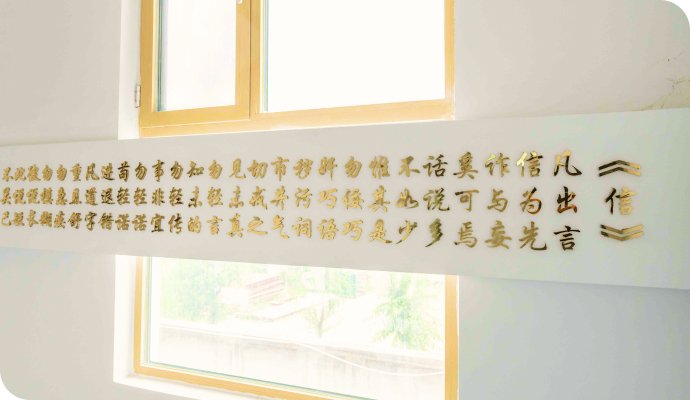 《信》
凡出言
信为先
诈与妄
奚可焉
话说多
不如少
惟其是
勿佞巧
奸巧语
秽污词
市井气
切戒之
见未真
勿轻言
知未的
勿轻传
事非宜
勿轻诺
苟轻诺
进退错
凡道字
重且舒
勿急疾
勿模糊
彼说长
此说短
不关己